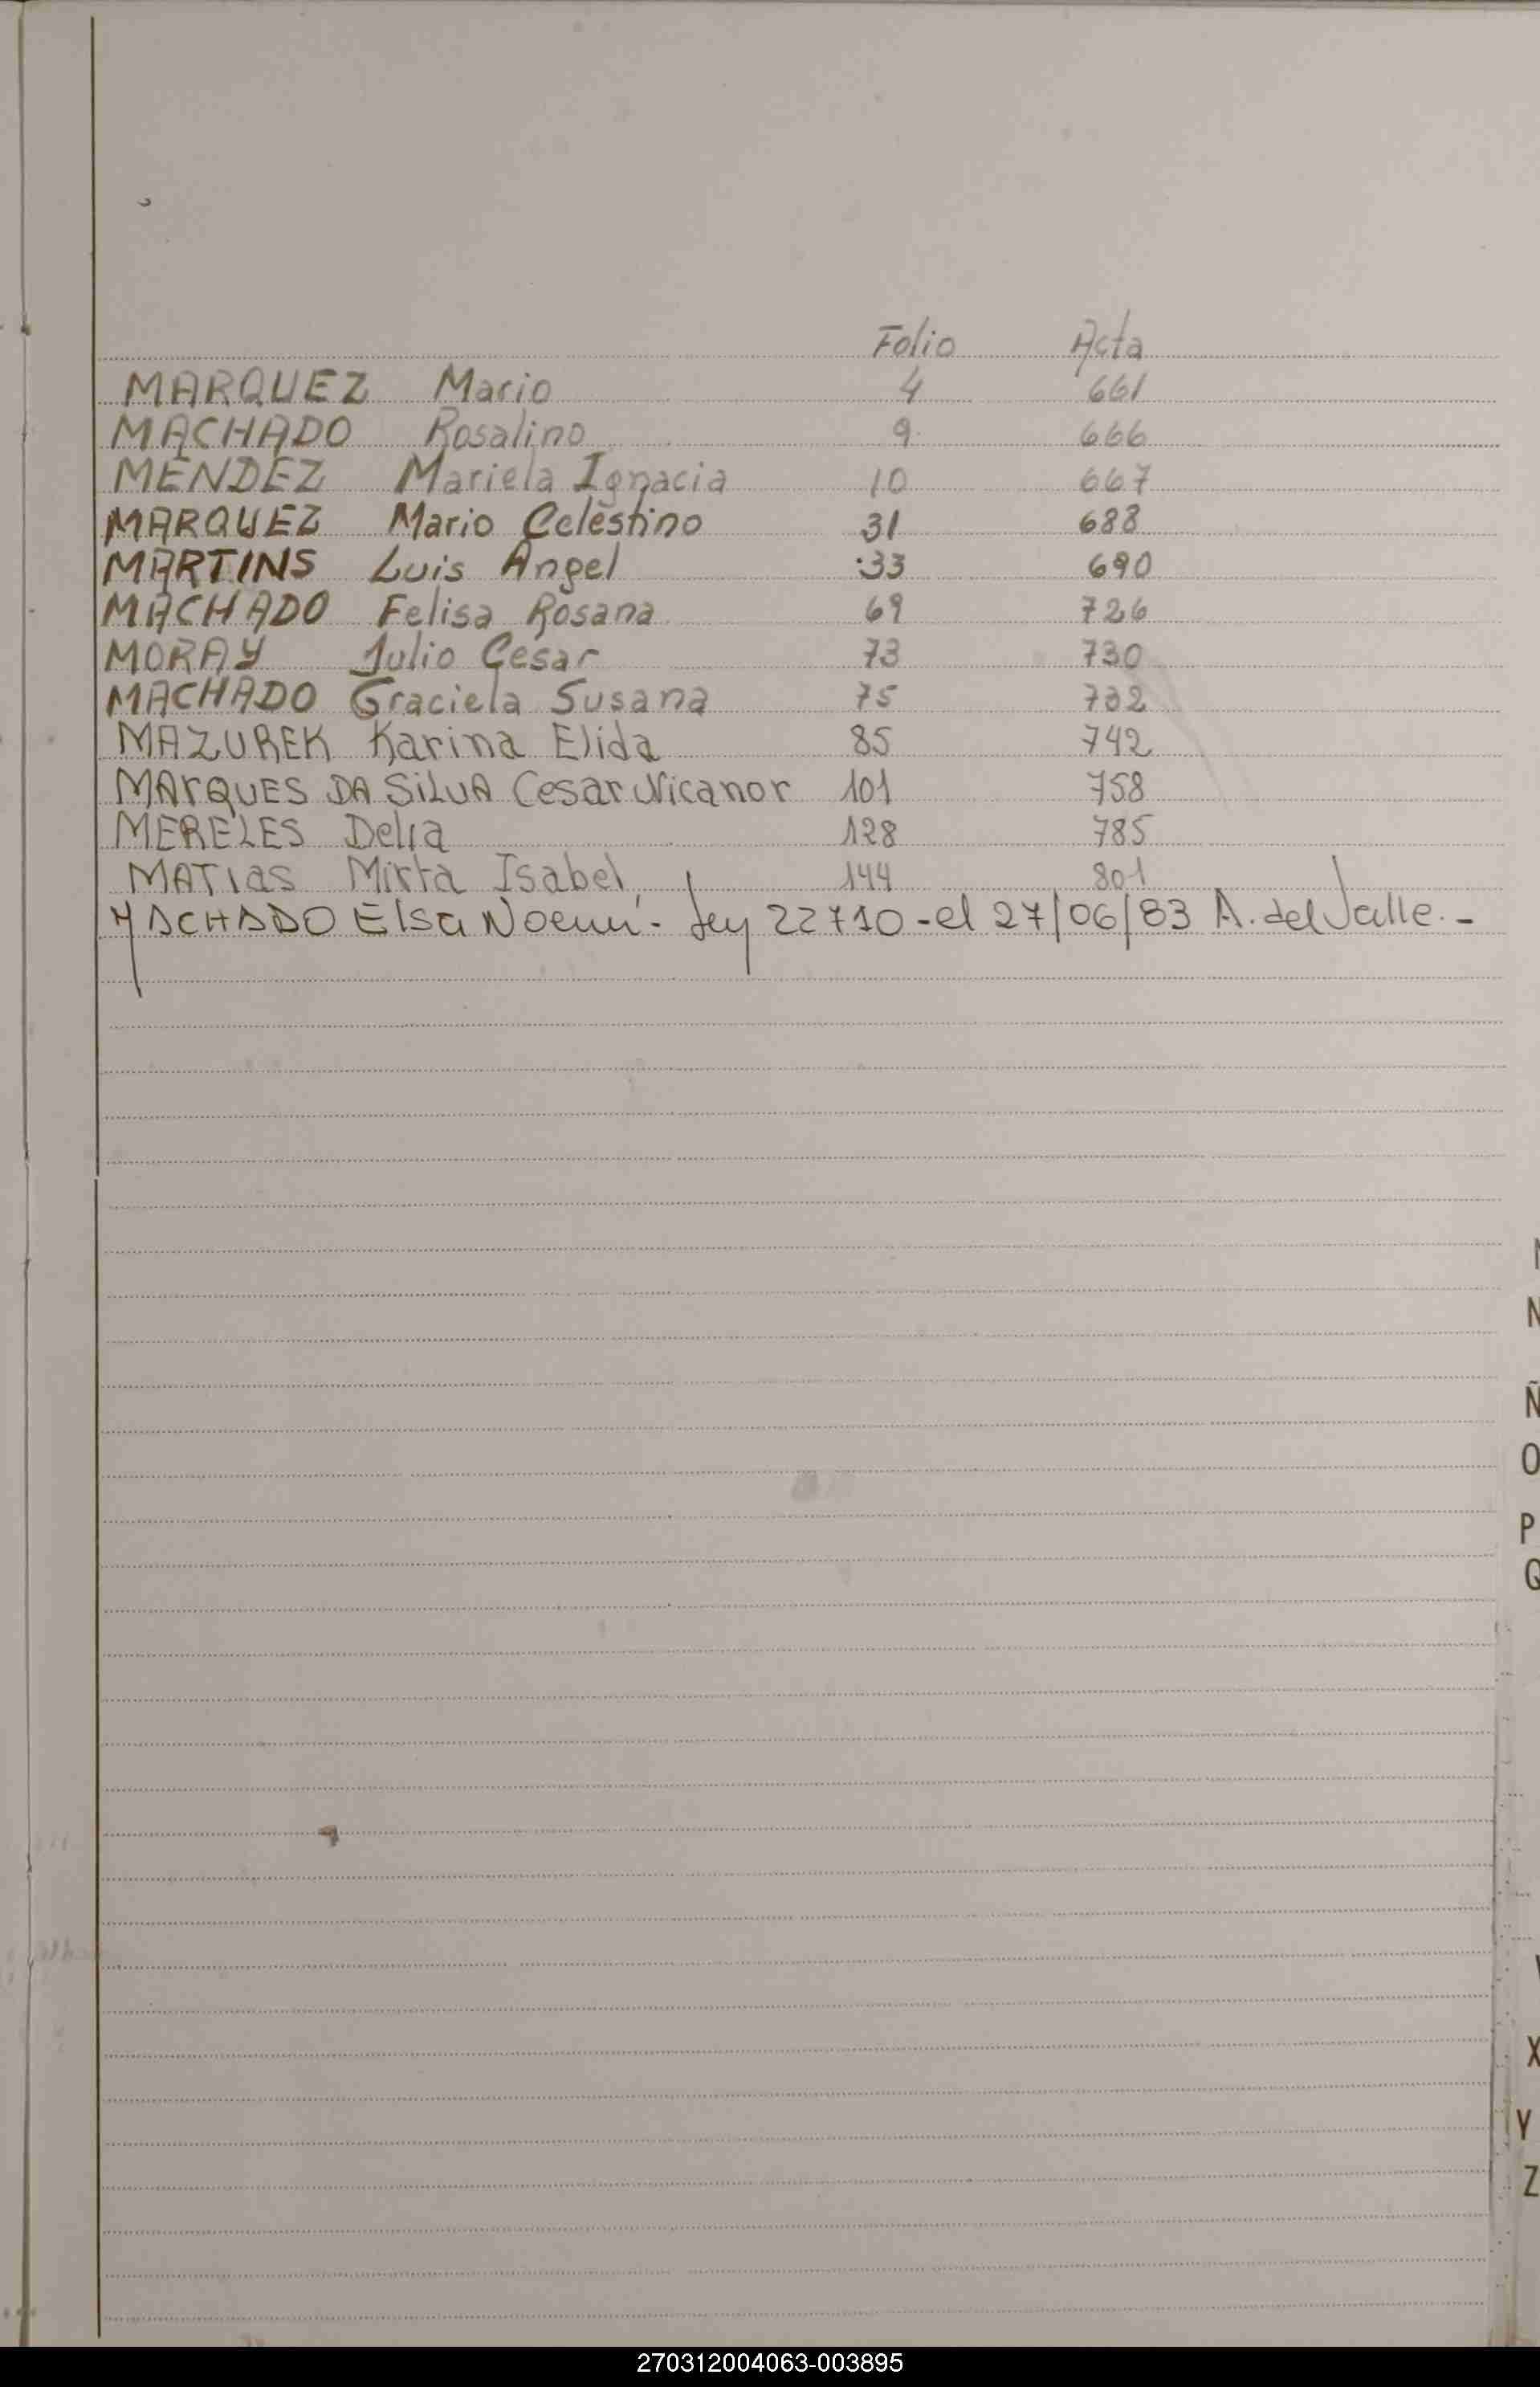 Folio Acta
MARQUEZ Mario 4 661
MACHADO Rosalino 9 666
MENDEZ Mariela Ignacia 10 667
MARQUEZ Mario Celestino 31 688
MARTINS Luis Angel 33 690
MACHADO Felisa Rosana 69 726
MORAY Julio Cesar 73 730
MACHADO Graciela Susana 75 732
MAZUREK Karina Elida 85 742
MARQUES DA SILVA Cesar Nicanor 101 758
MERELES Delia 128 785
MATIas Mirta Isabel 144 801
MACHADO Elsa Noemí - Ley 22710 - el 27/06/83 A. del Valle. -
N
Ñ
O
P
Q
X
Y
Z
270312004063-003895